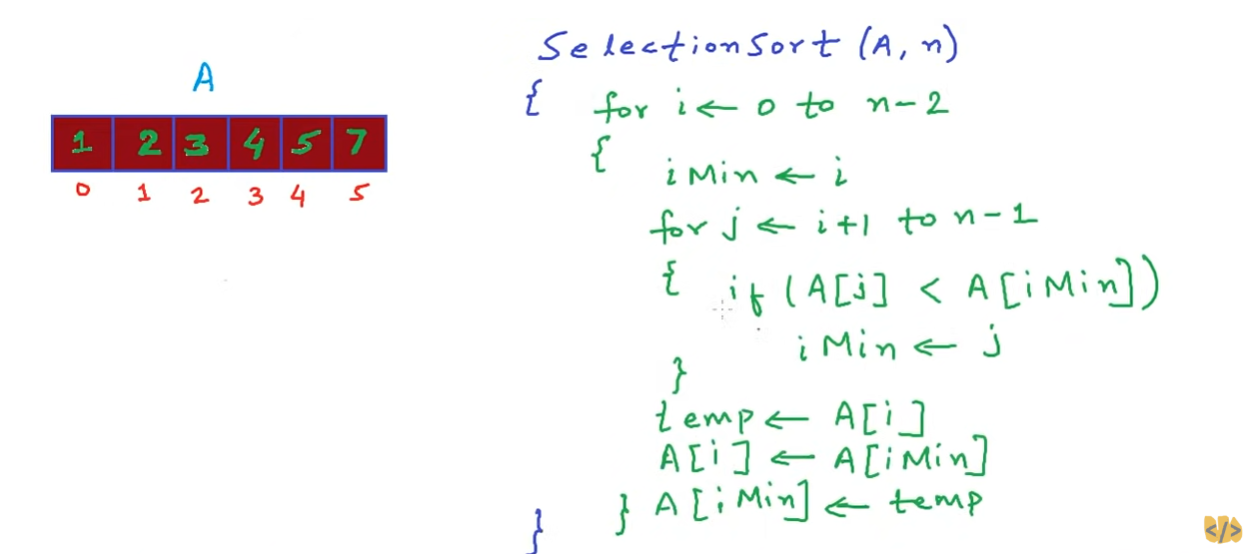 A
1 2 3 4 5 7
0 1 2 3 4 5
SelectionSort (A, n)
{ for i ← 0 to n-2
{
iMin ← i
for j ← i+1 to n-1
{ if (A[j] < A[iMin])
iMin ← j
}
temp ← A[i]
A[i] ← A[iMin]
} A[iMin] ← temp
}
</>